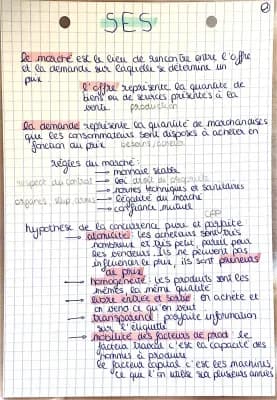 SES
le marché est le lieu de rencontre entre l'offre
et la demande sur laquelle se détermine un
prix
l'offre représente la quantité de
biens ou de services présentés à la
vente production
la demande représente la quantité de marchandises
que les consommateurs sont disposés à acheter en
fonction du prix besoins,
règles du marché :
→ monnaie stable
respect du contrat → loi droit de propriété
→ normes techniques et sanitaires
→ légalité du marché
→ confiance mutuel
hypothèse de la concurrence pure et parfaite
→ atomicité : les acheteurs sont très
nombreux et très petit, pareil pour
les vendeurs. Ils ne peuvent pas
influencer le prix, ils sont preneurs
de prix
→ homogénéité : les produits sont les
mêmes, la même qualité
→ libre entrée et sortie : on achète et
on vend ce qu'on veut
→ transparence parfaite information
sur l'étiquette
→ mobilité des facteurs de prod : le
facteur travail c'est la capacité des
hommes à produire
le facteur capital c'est les machines,
ce que l'on utilise sur plusieurs années